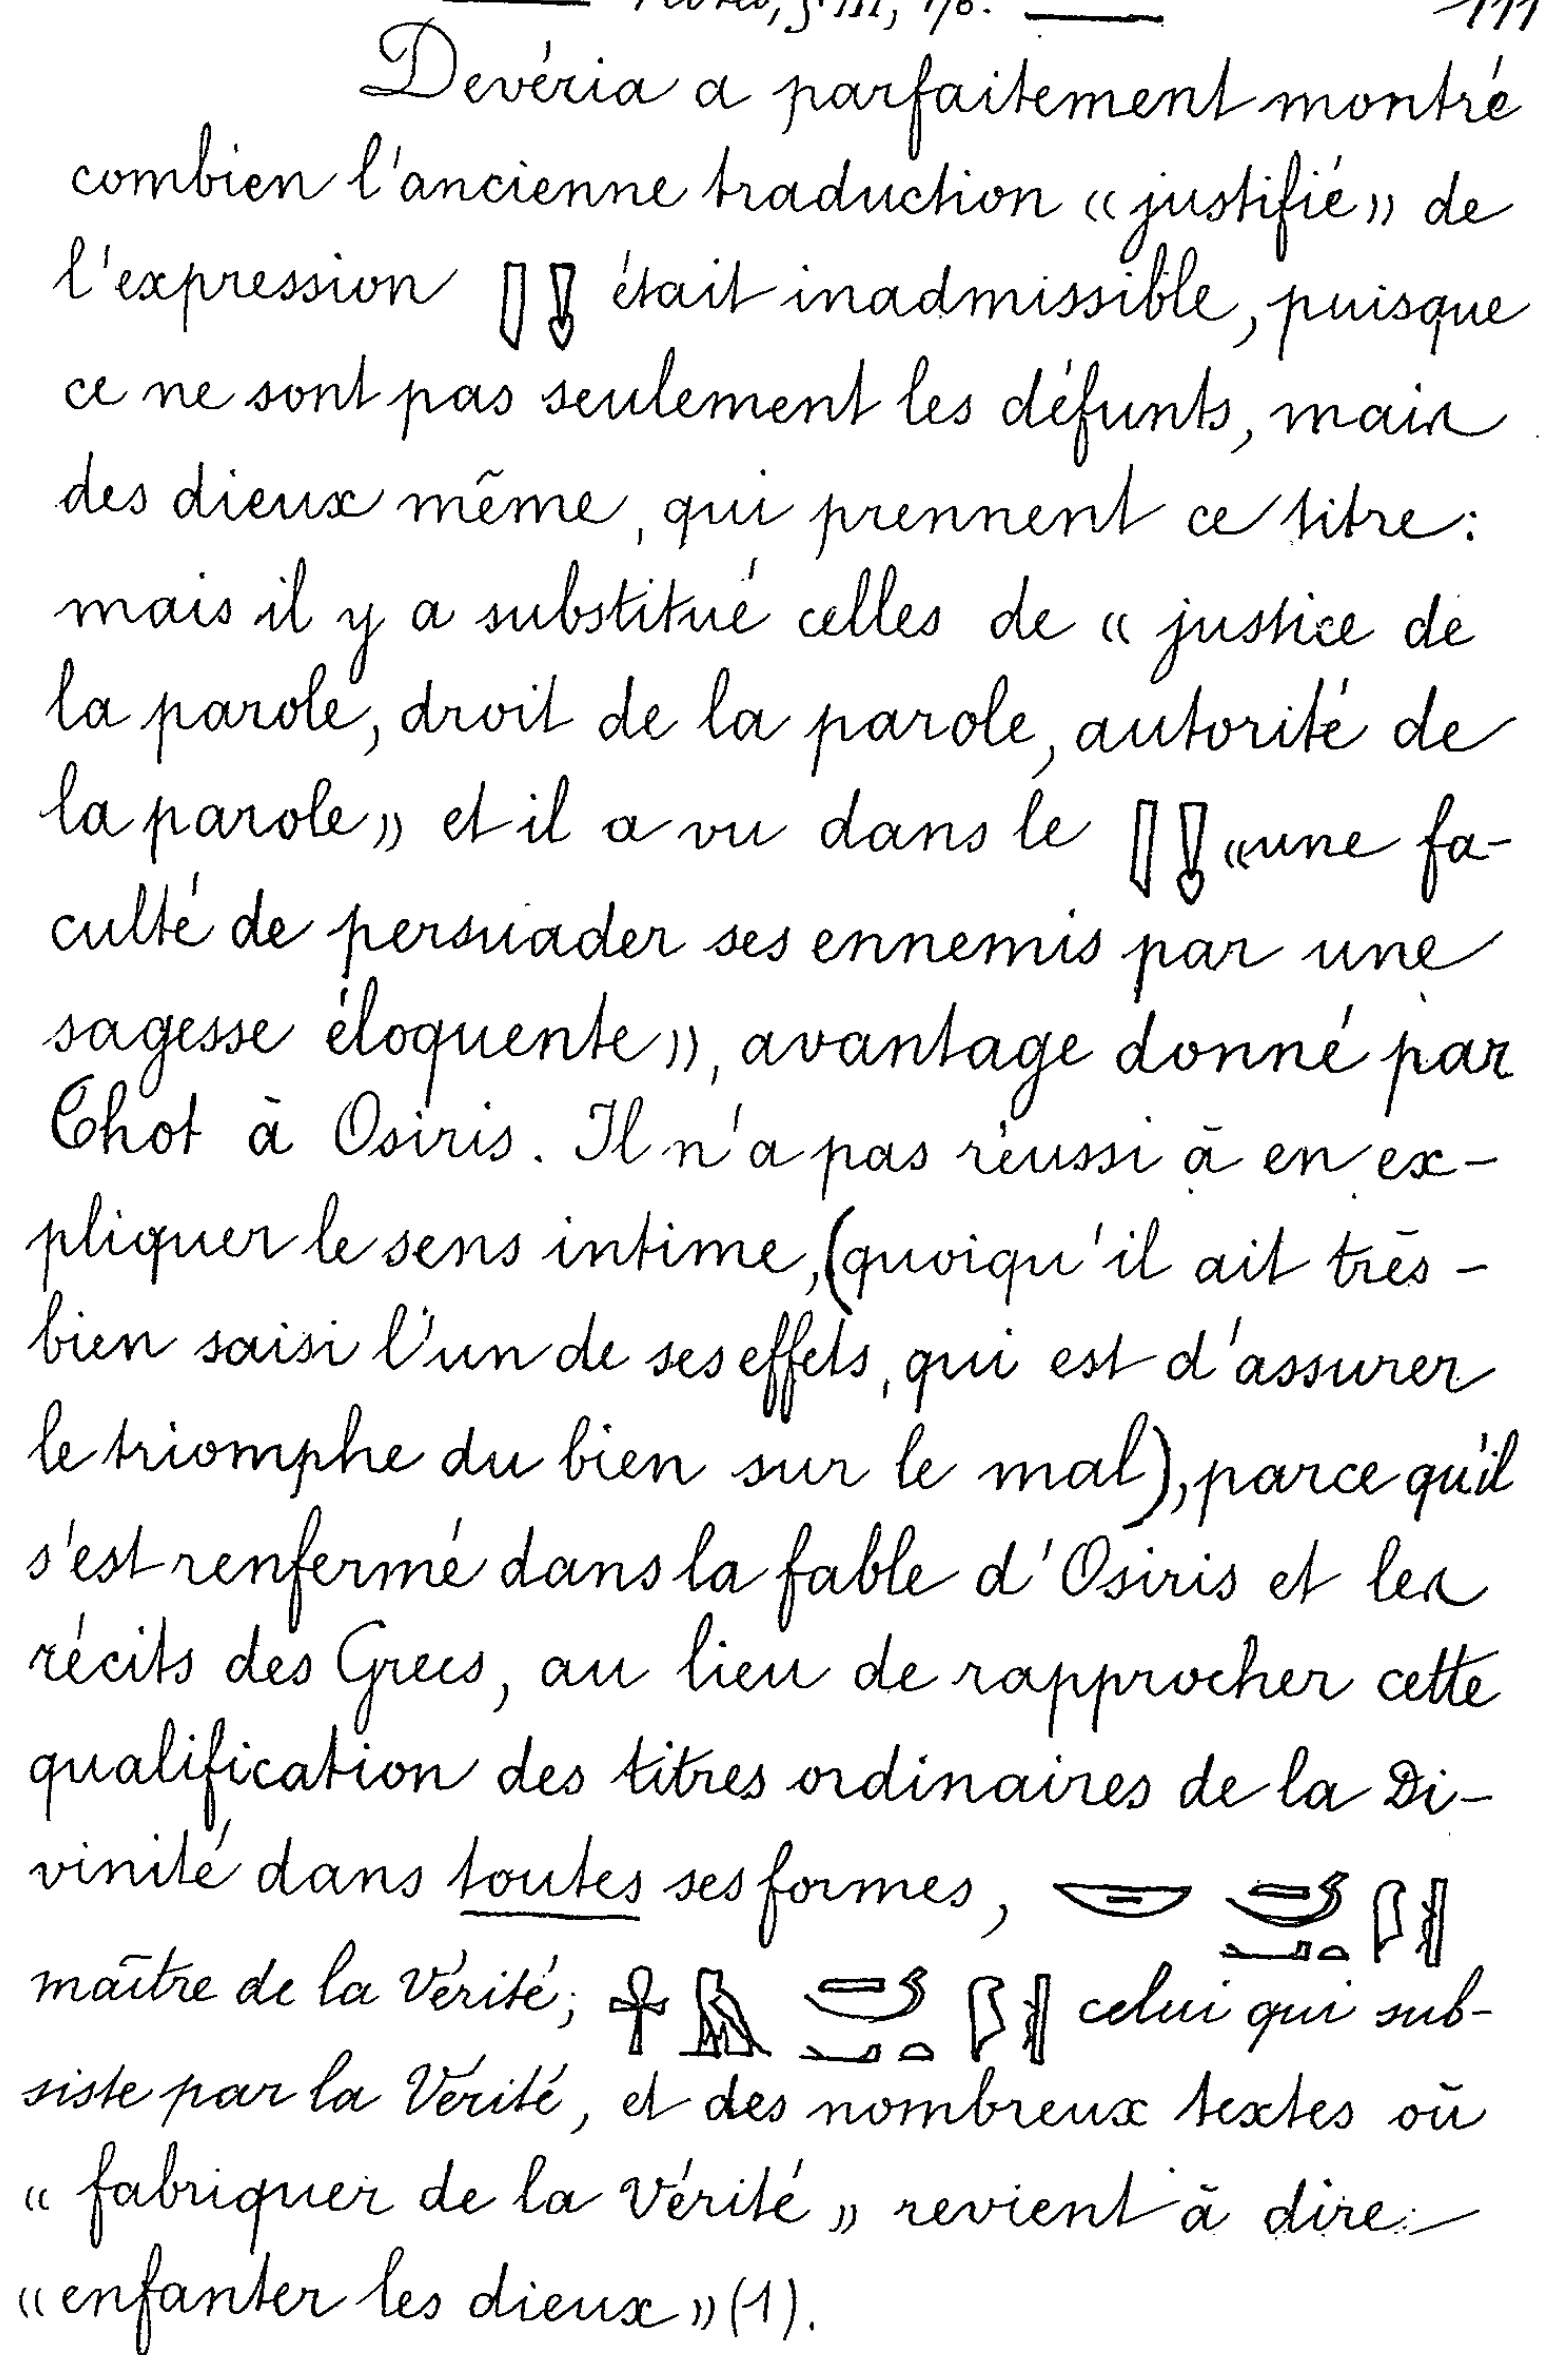 111
Devéria a parfaitement montré
combien l'ancienne traduction « justifié » de
l'expression 𓐙 𓊤 était inadmissible, puisque
ce ne sont pas seulement les défunts, mais
des dieux même, qui prennent ce titre :
mais il y a substitué celles de « justice de
la parole, droit de la parole, autorité de
la parole » et il a vu dans le 𓐙 𓊤 « une fa-
culté de persuader ses ennemis par une
sagesse éloquente », avantage donné par
Thot à Osiris. Il n'a pas réussi à en ex-
pliquer le sens intime, (quoiqu'il ait très-
bien saisi l'un de ses effets, qui est d'assurer
le triomphe du bien sur le mal), parce qu'il
s'est renfermé dans la fable d'Osiris et les
récits des Grecs, au lieu de rapprocher cette
qualification des titres ordinaires de la Di-
vinité dans toutes ses formes,
maître de la Vérité; 𓋹 celui qui sub-
siste par la Vérité, et des nombreux textes où
« fabriquer de la Vérité » revient à dire
« enfanter les dieux » (1).